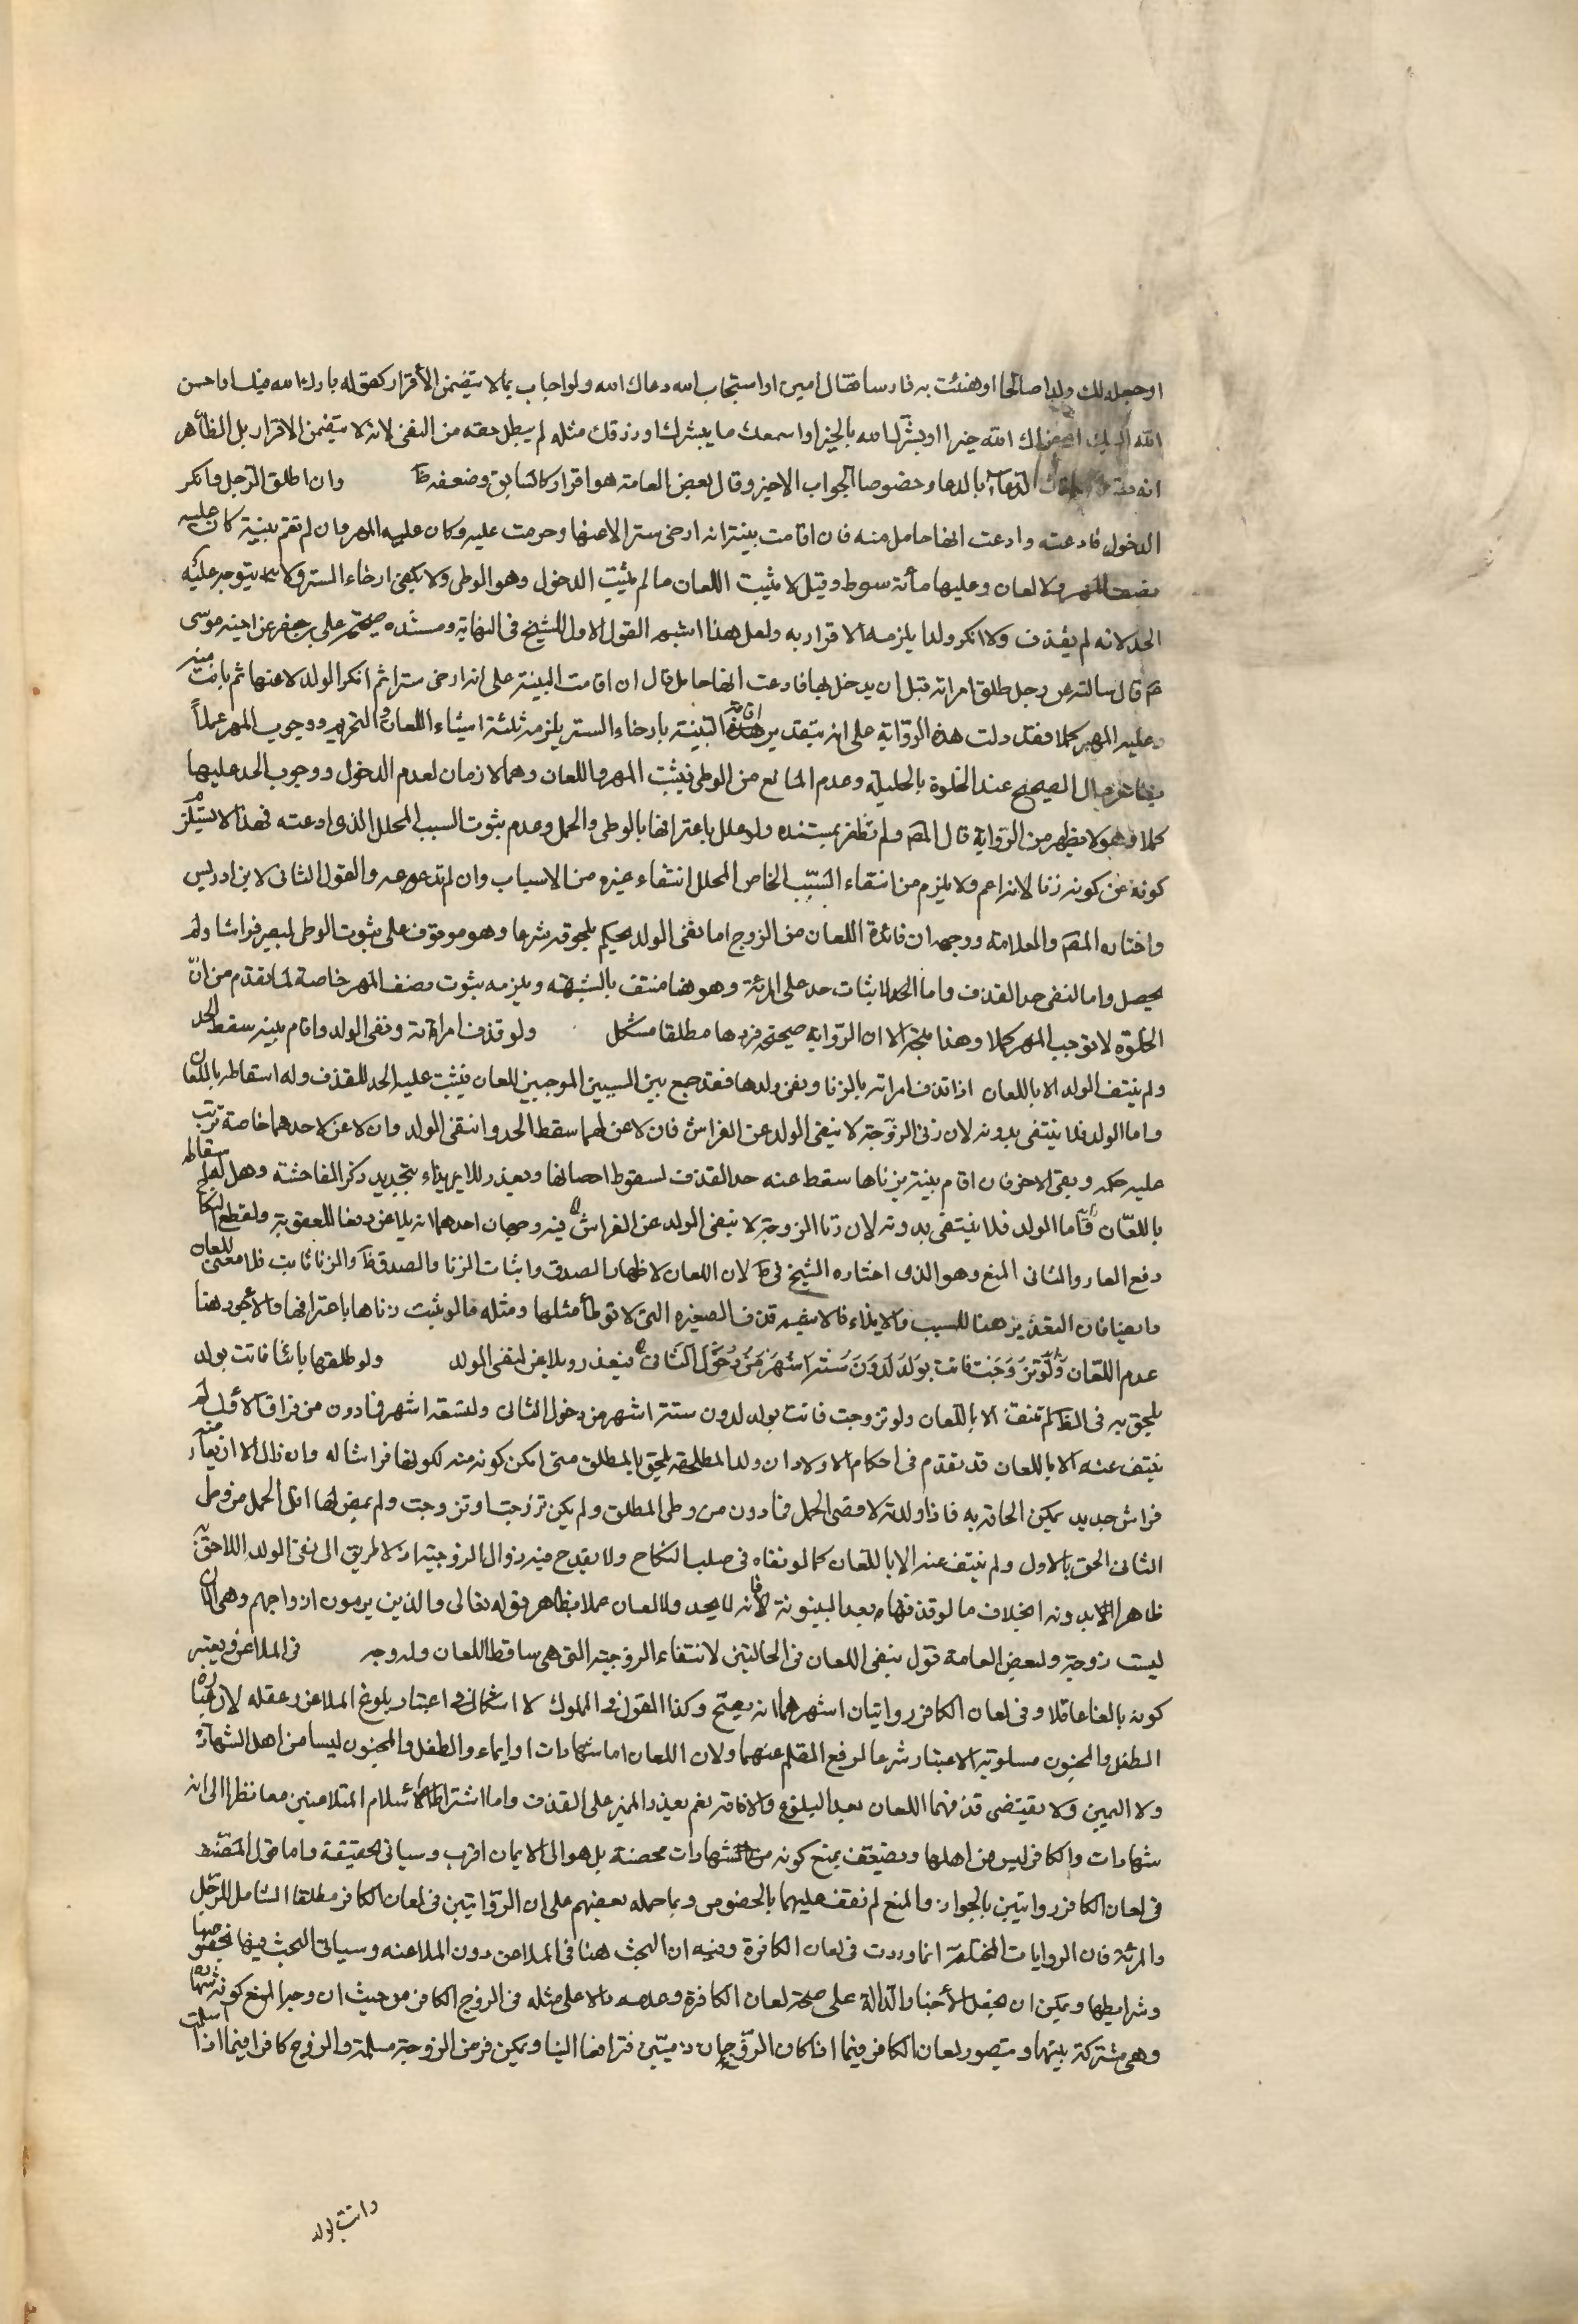 او جعله لك ولدا صالحا او هنئت به فارسا فقال امين او استجاب الله دعاك الله ولو اجاب بما لا يتضمن الأقرار كقوله بارك الله فيك او احسن
الله اليك او جزاك الله خيرا او بشرك الله بالخير او اسمعك ما يبشرك او رزقك مثله لم يبطل حقه من النفى لانه لا يتضمن الاقرار بل الظاهر
انه الدعاء بالدعاء وخصوصا الجواب الاخير وقال بعض العامة هو اقرار كالسابق وضعفه ظ وان اطلق الرجل وانكر
الدخول فادعته وادعت انها حامل منه فان اقامت بينة انه ارخى سترا لاعنها وحرمت عليه وكان عليه المهر وان لم تقم بينة كان عليه
نصف المهر ولا لعان وعليها مأئة سوط وقيل لا يثبت اللعان ما لم يثبت الدخول وهو الوطى ولا يكفى ارخاء الستر ولا يتوجه عليه
الحد لانه لم يقذف ولا انكر ولدا يلزمه الاقرار به ولعل هذا اشبه القول الاول للشيخ فى النهاية ومستنده صحيحة على بن جعفر عن اخيه موسى
ع قال سالته عن رجل طلق امراته قبل ان يدخل بها فادعت انها حامل قال ان اقامت البينة على انه ارخى سترا ثم انكر الولد لاعنها ثم بانت منه
وعليه المهر كملا فقد دلت هذه الرواية على انه بتقدير اقامة البينة بارخاء الستر يلزمه ثلثة اشياء اللعان والتحريم ووجوب المهر عملاً
بظاهر حال الصحيح عند الخلوة بالحليلة وعدم المانع من الوطى فيثبت المهر واللعان وهما لازمان لعدم الدخول ووجوب الحد عليها
كملا وهو لا يظهر من الرواية قال المص ولم نظفر بمستنده ولو علل باعترافها بالوطى والحمل وعدم ثبوت السبب المحلل الذى ادعته فهذا لا يستلزم
كونه عن كونه زنا لانه اعم ولا يلزم من انتقاء السبب الخاص المحلل انتفاء غيره من الاسباب وان لم تدعه والقول الثانى لابن ادريس
واختاره المص والعلامة ووجهه ان فائدة اللعان من الزوج اما نفى الولد يحكم بلحوقه شرعا وهو موقوف على ثبوت الوطى ليصير فراشا ولم
يحصل واما لنفى حد القذف واما الحد لاثبات حد على المرئة وهو هنا منتف بالشبهة ويلزمه ثبوت نصف المهر خاصة لما تقدم من انّ
الخلوة لا توجب المهر كملا وهذا متجه الا ان الرواية صحيحة فردها مطلقا مشكل ولو قذف امراة ونفى الولد واقام بينة سقط الحد
ولم ينتف الولد الا باللعان اذا قذف امراته بالزنا ونفى ولدها فقد جمع بين السببين الموجبين للعان فيثبت عليه الحد للقذف وله اسقاطه باللعان
واما الولد فلا ينتفى بدونه لان زنى الزوجة لا ينفى الولد عن الفراش فان لاعن لهما سقط الحد وانتفى الولد وان لاعن لاحدهما خاصة ترتب
عليه حكمه وبقى الاخر فان اقام بينة بزناها سقط عنه حد القذف لسقوط احصانها ويعذر للايذاء بتجديد ذكر الفاحشة وهل له اسقاطه
باللعان فأما الولد فلا ينتفى بدونه لان زنا الزوجة لا ينفى الولد عن الفراش فيه وجهان احدهما انه يلاعن دفعا للعقوبة ولقطع النكاح
دفع العار والثانى المنع وهو الذى اختاره الشيخ فى ط لان اللعان لاظهار الصدق واثبات الزنا والصدق ظ والزنا ثابت فلا معنى للعان
وايضا فان التعذير هنا للسبب والايذاء فلا يشبه قذف الصغيرة التى لا توطأ مثلها ومثله ما لو ثبت زناها باعترافها والأجود هنا
عدم اللعان وَلَوتزوجت فاتت بولد لدون ستة اشهر من دخول الثانى فيعذر ويلاعن لنفى الولد ولو طلقها بائنا فاتت بولد
يلحق به فى الظ لم ينتف الا باللعان ولو تزوجت فاتت بولد لدون ستة اشهر من دخول الثانى ولتسعة اشهر فما دون من فراق الاول لم
ينتف عنه الا باللعان قد تقدم فى احكام الاولاد ان ولد المطلقه يلحق بالمطلق متى امكن كونه منه لكونها فراشا له وان زال الا ان يعارضه
فراش جديد يمكن الحاقه به فاذا ولدته لاقصى الحمل فما دون من وطى المطلق ولم يكن تزوجت او تزوجت ولم يمض لها اقل الحمل من وطى
الثانى الحق بالاول ولم ينتف عنه الا باللعان كما لو نفاه فى صلب النكاح ولا يقدح فيه زوال الزوجية اذ لا طريق الى نفى الولد اللاحق به
ظاهرا الا بدونه بخلاف ما لو قذفها بعد البينونة فانه يحد ولا لعان عملا بظاهر قوله تعالى والذين يرمون ازواجهم وهى الان
ليست زوجة ولبعض العامة قول بنفى اللعان فى الحالتين لانتفاء الزوجية التى هى ساقط اللعان وله وجه فى الملاعن ويعتبر
كونه بالغا عاقلا وفى لعان الكافر روايتان اشهرهما انه يصح وكذا القول فى المملوك لا اشكال فى اعتبار بلوغ الملاعن وعقله لان عبارة
الطفل والمجنون مسلوبة الاعتبار شرعا لرفع القلم عنهما ولان اللعان اما شهادات او ايماء والطفل والمجنون ليسا من اهل الشهادة
ولا اليمين ولا يقتضى قذفهما اللعان بعد البلوغ والافاقة نعم يعذر المميز على القذف واما اشتراط الأسلام المتلاعنين معا نظرا الى انه
شهادات والكافر ليس من اهلها ويضعف بمنع كونه من الشهادات محضة بل هو الى الايمان اقرب وسياتى تحقيقه واما قول المصنف
فى لعان الكافر روايتين بالجواز والمنع لم نقف عليهما بالخصوص وبما حمله بعضهم على ان الروايتين فى لعان الكافر مطلقا الشامل للرجل
والمرئة فان الروايات المختلفة انما وردت فى لعان الكافرة وفيه ان البحث هنا فى الملاعن دون الملاعنه وسياتى البحث فيها بخصوصها
وشرايطها ويمكن ان يجعل الأخبار الدالة على صحة لعان الكافرة وعدمه دالا على مثله فى الزوج الكافر من حيث ان وجه المنع كونه شهادة
وهى مشتركة بينهما ويتصور لعان الكافر فيما اذا كان الزوجان ذميين فترافعا الينا ويمكن فرض الزوجة مسلمة والزوج كافرا فيما اذا اسلمت
واتت بولد